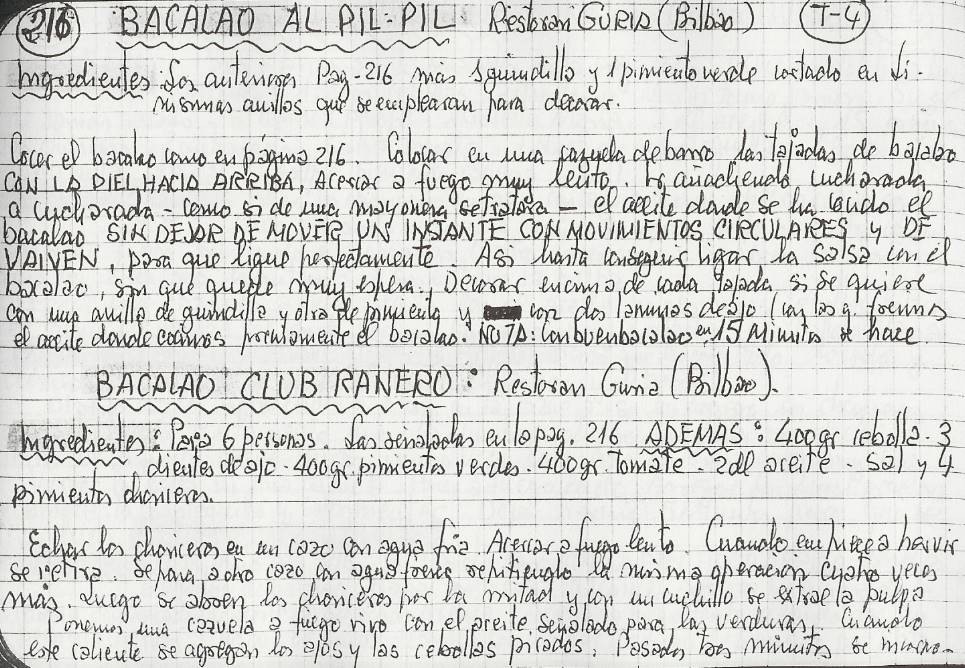 216 BACALAO AL PIL-PIL Restoran GURIA (Bilbao) T-4
Ingredientes: Los anteriores Pag-216 más 1 guindilla y 1 pimiento verde cortado en fi-
nísimos anillos que se emplearan para decorar.
Cocer el bacalao como en página 216. Colocar en una cazuela de barro las tajadas de bacalao
CON LA PIEL HACIA ARRIBA, Acercar a fuego muy lento. Ir añadiendo cucharada
a cucharada - como si de una mayonesa se tratara - el aceite donde se ha cocido el
bacalao SIN DEJAR DE MOVER UN INSTANTE CON MOVIMIENTOS CIRCULARES y DE
VAIVEN, para que ligue perfectamente. Asi hasta conseguir ligar la salsa con el
bacalao, sin que quede muy espesa. Decorar encima de cada tajada si se quiere
con una anilla de guindilla y otra de pimiento y con dos laminas de ajo (con los q. freimos
el aceite donde cocimos previamente el bacalao. NOTA: Con buen bacalao en 15 minutos se hace.
BACALAO CLUB RANERO: Restoran Guria (Bilbao).
Ingredientes: Para 6 personas. Las señaladas en la pag. 216 ADEMAS: 400 gr cebolla. 3
dientes de ajo - 400 gr. pimientos verdes - 400 gr. Tomate - 2 dl aceite - Sal y 4
pimientos choriceros.
Echar los choriceros en un cazo con agua fria. Acercar a fuego lento. Cuando empiece a hervir
se retira. Se pasa a otro cazo con agua fresca repitiendo la misma operación cuatro veces
más. Luego se abren los choriceros por la mitad y con un cuchillo se extrae la pulpa
Ponemos una cazuela a fuego vivo con el aceite señalado para las verduras. Cuando
este caliente se agregan los ajos y las cebollas picados. Pasados tres minutos se